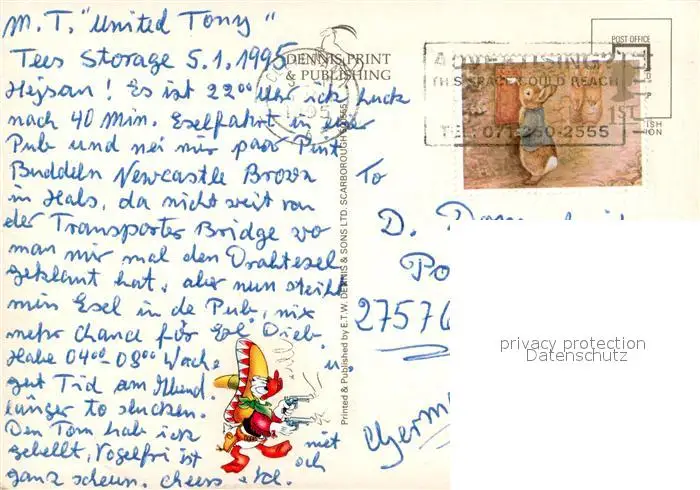 M.T. "United Tony"
Tees Storage 5.1.1995
Heysan! Es ist 22⁰⁰ Uhr ick huck
nach 40 Min. Eselfahrt in
Pub und nei mir paar Pint
Buddeln Newcastle Brown
in Hals, da nicht weit von
der Transporter Bridge wo
man mir mal den Drahtesel
geklaut hat, aber nun steiht
min Esel in de Pub, nix
mehr Chance für Dieb
Habe 04⁰⁰-08⁰⁰ Wache u.
gut Tid am
länger to slucken.
Den Tom hab ick
Vogelfri ist och
ganz scheun. cheers
DENNIS PRINT
& PUBLISHING
Printed & Published by E.T.W. DENNIS & SONS LTD. SCARBOROUGH
POST OFFICE
ADVERTISING?
THIS SPACE COULD REACH
TEL: 071-250-2555
1ST
To
D.
27576
privacy protection
Datenschutz